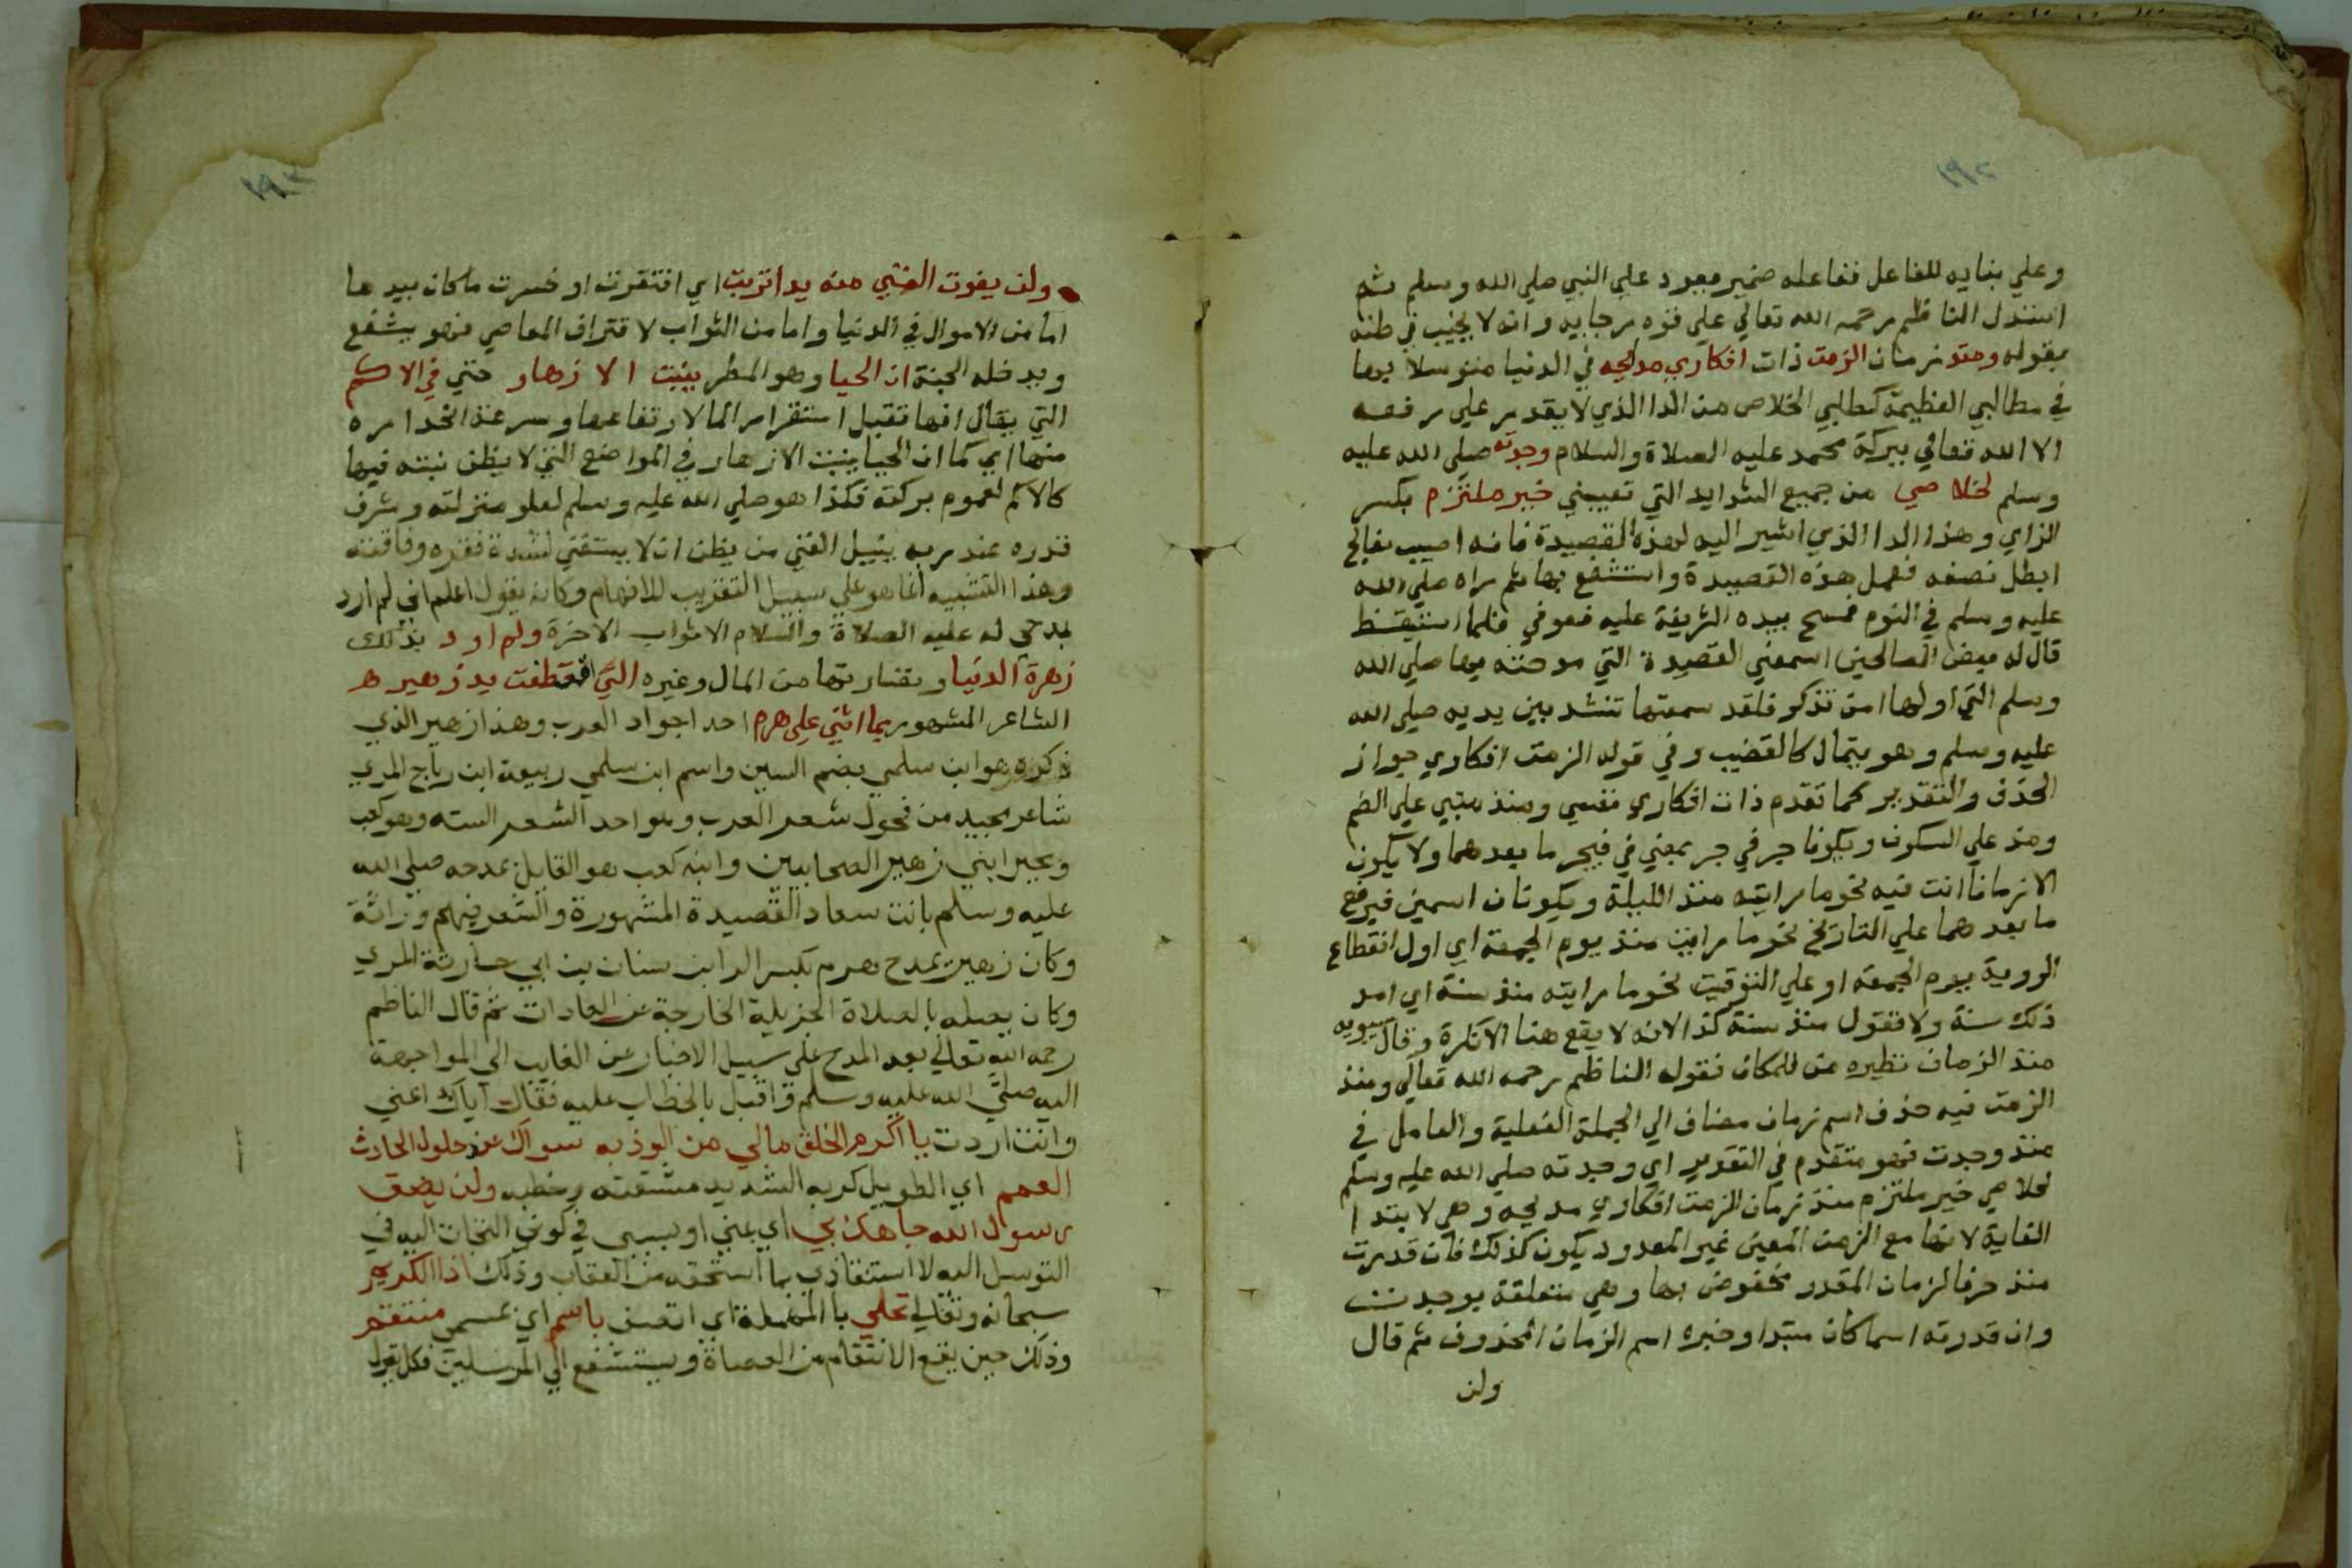 ١٩٢
وعلي بنايه للفاعل ففاعله ضمير يعود علي النبي صلي الله وسلم ثم
استدل الناظم رحمه الله تعالي علي قوه رجايه وانه لا يخيب في ظنه
بقوله ومنذ زمان الزمت ذات افكاري مدايحه في الدنيا متوسلا بها
في مطالبي العظيمة كمطلبي الخلاص من الدا الذي لا يقدر علي رفعه
الا الله تعالي ببركة محمد عليه الصلاة والسلام وجدته صلي الله عليه
وسلم لخلاصي من جميع الشدايد التي تصيبني خير ملتزم بكسر
الزاي وهذا الدا الذي اشير اليه لهذه القصيدة فانه اصيب بفالج
ابطل نصفه فعمل هذه القصيدة واستشفع بها ثم راه صلي الله
عليه وسلم في النوم فمسح بيده الشريفة عليه فعوفي فلما استيقظ
قال له بعض الصالحين اسمعني القصيدة التي مدحته بها صلي الله
وسلم التي اولها امن تذكر فلقد سمعتها تنشد بين يديه صلي الله
عليه وسلم وهو يتمال كالقضيب وفي قوله الزمت افكاري جواز
الحذف والتقدير كما تقدم ذات افكاري نفسي ومنذ مبني علي الضم
ومذ علي السكون ويكونا حرفي جر بمعني في فيجر ما بعدهما ولا يكون
الا زمانا انت فيه نحو ما رايته منذ الليلة ويكونان اسمين فيرفع
ما بعدهما علي التاريخ نحو ما رايت منذ يوم الجمعة اي اول انقطاع
الروية يوم الجمعه او علي التوقيت نحو ما رايته منذ سنة اي امد
ذلك سنة ولا تقول منذ سنة كذا لانه لا يقع هنا الا نكرة وقال سيبويه
منذ الزمان نظيره من للمكان فقوله الناظم رحمه الله تعالي ومنذ
الزمت فيه حذف اسم زمان مضاف الي الجملة الفعلية والعامل في
منذ وجدت فهو متقدم في التقدير اي وجدته صلي الله عليه وسلم
لخلاصي خير ملتزم منذ زمان الزمت افكاري مدايحه وهي لابتدا
الغاية لانها مع الزمن المعين غير المعدود يكون كذلك فان قدرت
منذ حرفا لزمان المقدر مخفوض بها وهي متعلقة بوجدت
وان قدرته اسما كان مبتدا وخبره اسم الزمان المحذوف ثم قال
ولن
١٩٣
ولن يفوت الغني منه يدا تربت اي افتقرت او خسرت ما كان بيدها
اما من الاموال في الدنيا واما من الثواب لاقتراف المعاصي فهو يشفع
ويدخله الجنة ان الحيا وهو المطر ينبت الازهار حتي في الاكم
التي يقال انها تقبل استقرار الما لارتفاعها وسرعة انحداره
منها اي كما ان الحيا ينبت الازهار في المواضع التي لا يظن نبته فيها
كالاكم لعموم بركته فكذا هو صلي الله عليه وسلم لعلو منزلته وشرف
قدره عند ربه ينيل الغني من يظن ان لا يستغني لشدة فقره وفاقته
وهذا التشبيه انما هو علي سبيل التقريب للافهام وكانه يقول اعلم اني لم ارد
بمدحي له عليه الصلاة والسلام الا ثواب الاخرة ولم ارد بذلك
زهرة الدنيا ونضارتها من المال وغيره التي اقتطفت يد زهير هـ
الشاعر المشهور بما اثني علي هرم احد اجواد العرب وهذا زهير الذي
ذكره هو ابن سلمي بضم السين واسم ابن سلمي ربيعة ابن رياح المري
شاعر مجيد من فحول شعر العرب وهو احد الشعر السته وهو كعب
وبجير ابني زهير الصحابيين وابنه كعب هو القايل بمدحه صلي الله
عليه وسلم بانت سعاد القصيدة المشهورة والشعر فيهم وراثة
وكان زهير يمدح هرم بكسر الرا ابن سنان بن ابي حارثة المري
وكان يصله بالصلاة الجزيلة الخارجة عن العادات ثم قال الناظم
رحمه الله تعالي بعد المدح علي سبيل الاخبار عن الغايب الي المواجهة
اليه صلي الله عليه وسلم واقبل بالخطاب عليه فقال اياك اعني
وانت اردت يا اكرم الخلق مالي من الوذ به سواك عند حلول الحادث
العمم اي الطويل كربه الشديد مشقته وخطبه ولن يضق
رسول الله جاهك بي اي عني او بسببي في كوني التجات اليه في
التوسل اليه لاستنقاذي بما استحقه من العقاب وذلك اذا الكريم
سبحانه وتعالي تحلي بالمهملة اي اتصف باسم اي بمسمي منتقم
وذلك حين يقع الانتقام من العصاة ويستشفع الي المرسلين فكل يقول